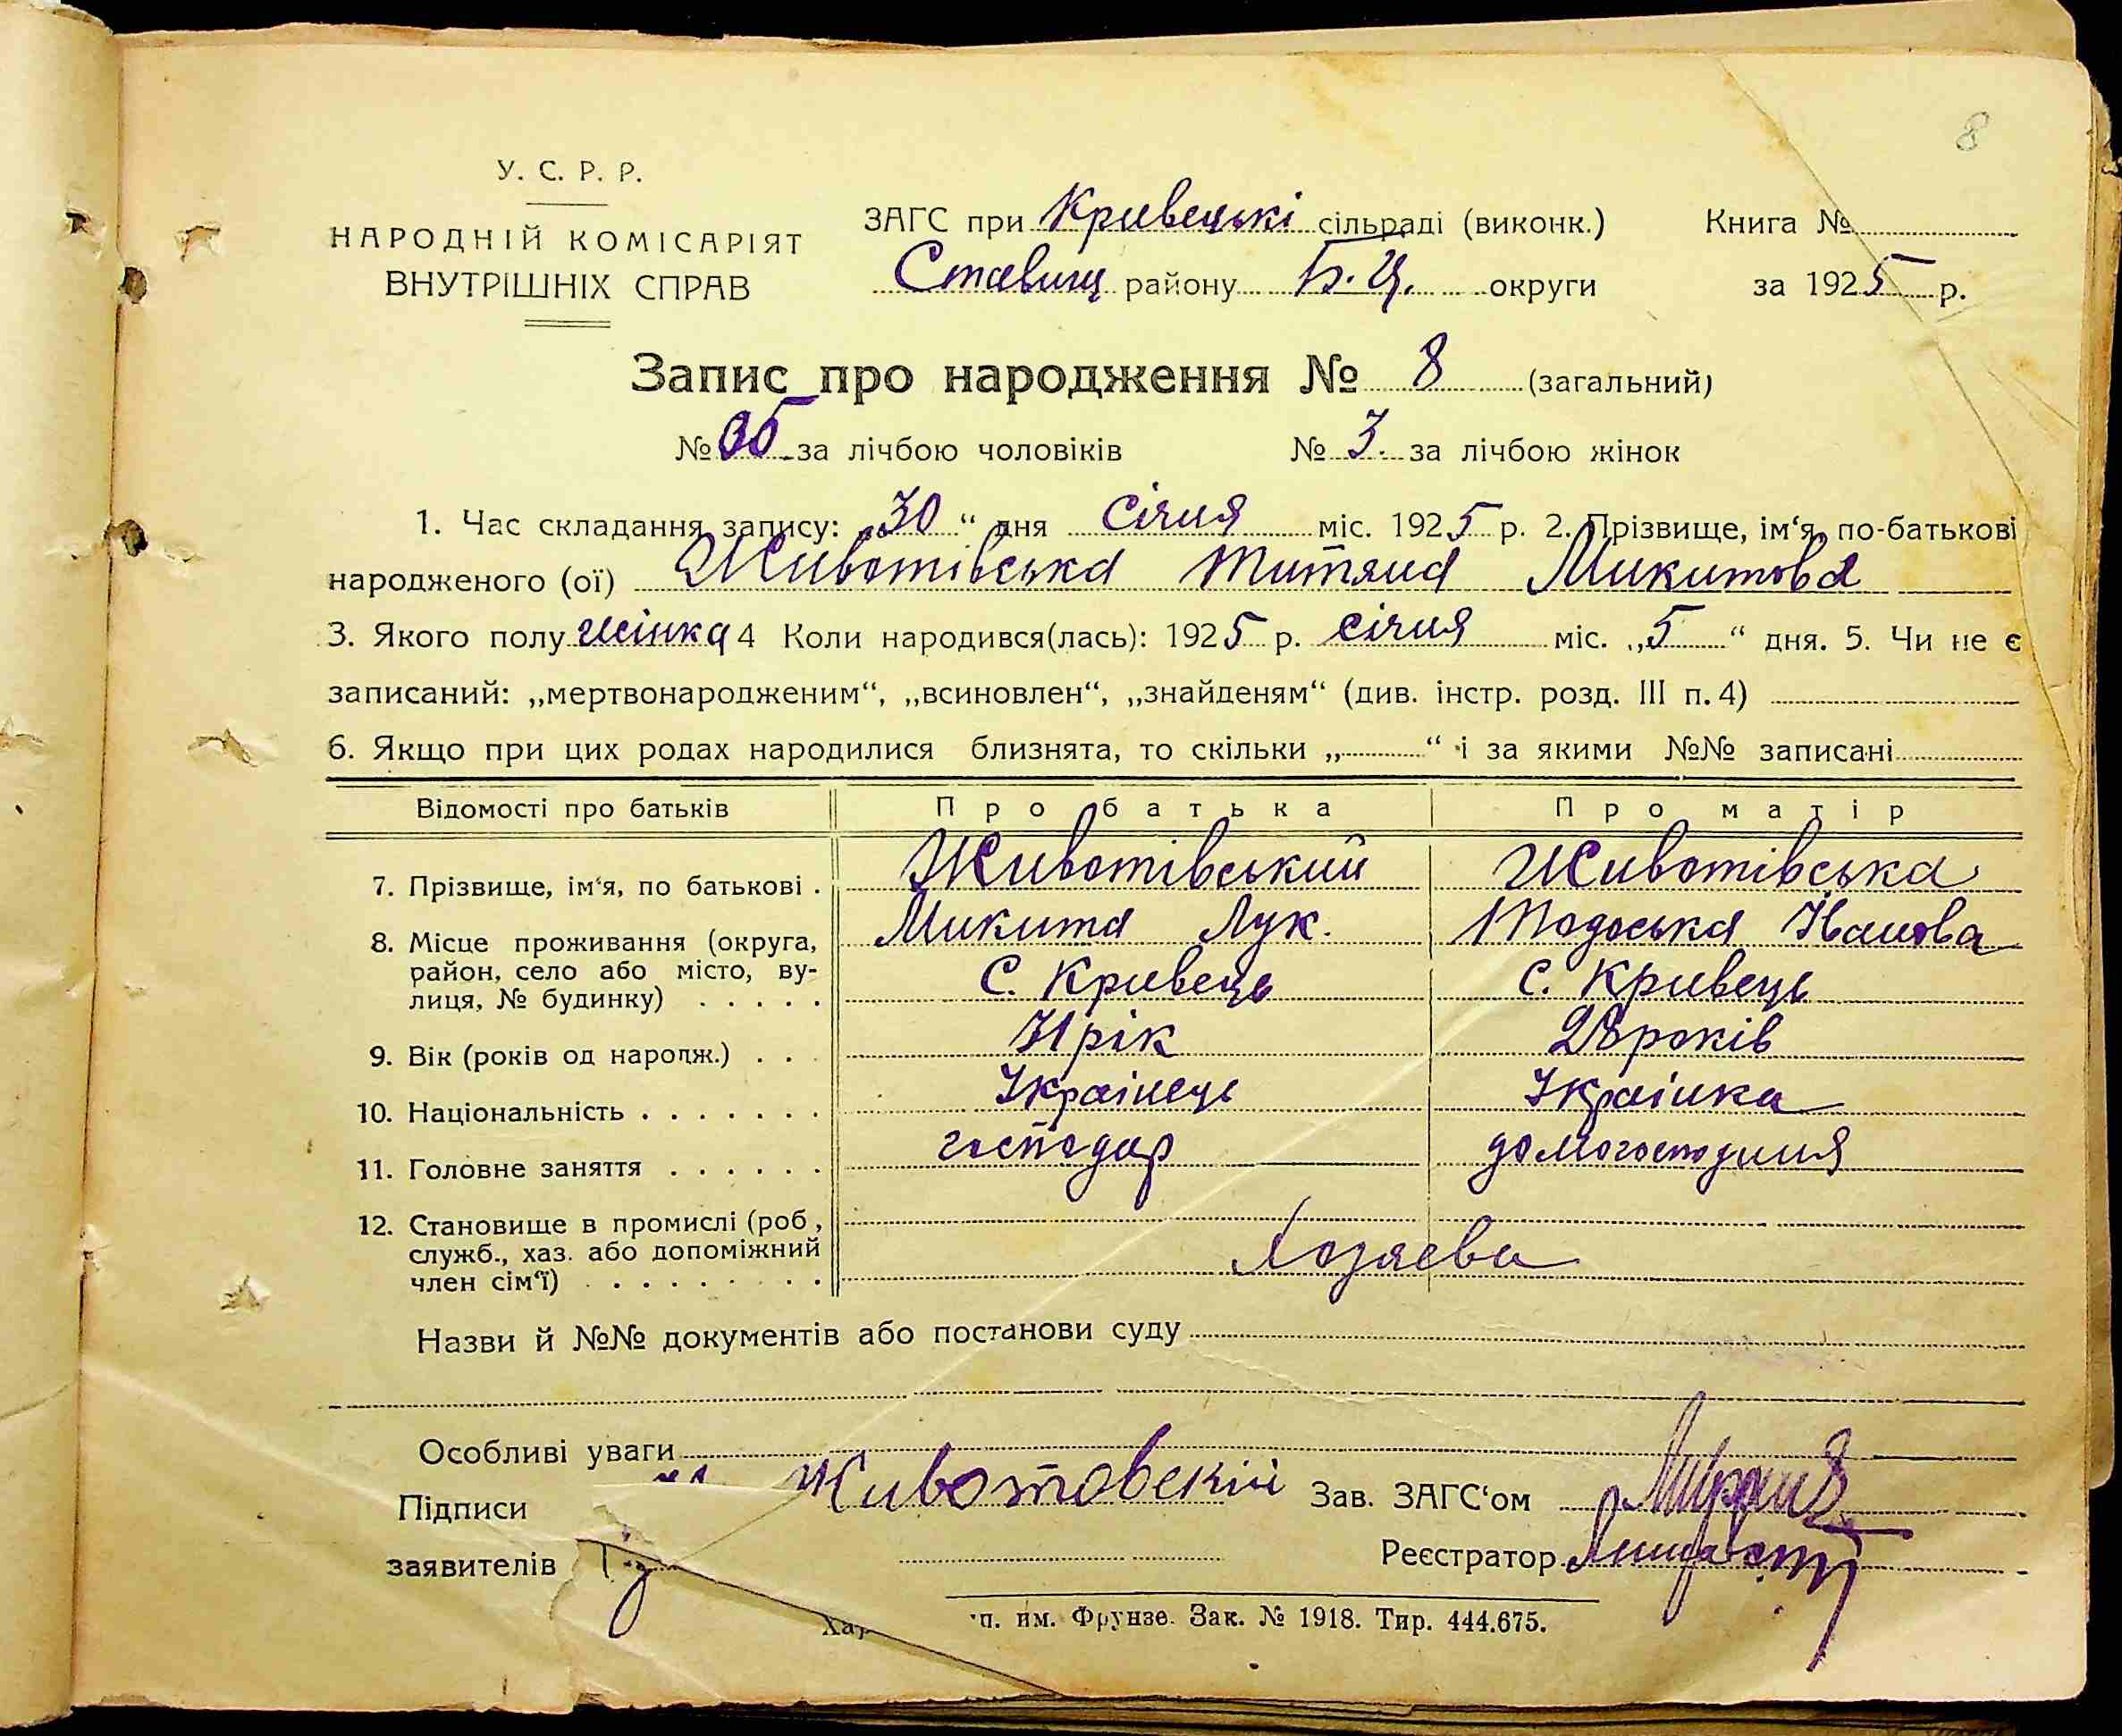 8
У. С. Р. Р.
НАРОДНІЙ КОМІСАРІЯТ
ВНУТРІШНІХ СПРАВ
ЗАГС при Кривецькі сільраді (виконк.) Книга №
Ставищ району Б.Ц. округи за 1925 р.
Запис про народження № 8 (загальний)
№ за лічбою чоловіків № 3. за лічбою жінок
1. Час складання запису: „30“ дня Січня міс. 1925 р. 2. Прізвище, ім‘я, по-батькові
народженого (ої) Животівська Титяна Микитова
3. Якого полу жінка 4 Коли народився(лась): 1925 р. січня міс. „5“ дня. 5. Чи не є
записаний: „мертвонародженим“, „всиновлен“, „знайденям“ (див. інстр. розд. III п. 4)
6. Якщо при цих родах народилися близнята, то скільки „ “ і за якими №№ записані
Відомості про батьків Про батька Про матір
7. Прізвище, ім‘я, по батькові . Животівський Животівська
Микита Лук. Тодоська Іванова
8. Місце проживання (округа, район, село або місто, ву-
лиця, № будинку) . . . . . С. Кривець С. Кривець
9. Вік (років од народж.) . . . 31 рік 28 років
10. Національність . . . . . . . Українець Українка
11. Головне заняття . . . . . . господар домогосподиня
12. Становище в промислі (роб,
служб., хаз. або допоміжний
член сім‘ї) . . . . . . . . Хозяева
Назви й №№ документів або постанови суду
Особливі уваги
Підписи Животовскій Зав. ЗАГС‘ом
заявителів Реєстратор
Хар п. им. Фрунзе. Зак. № 1918. Тир. 444.675.